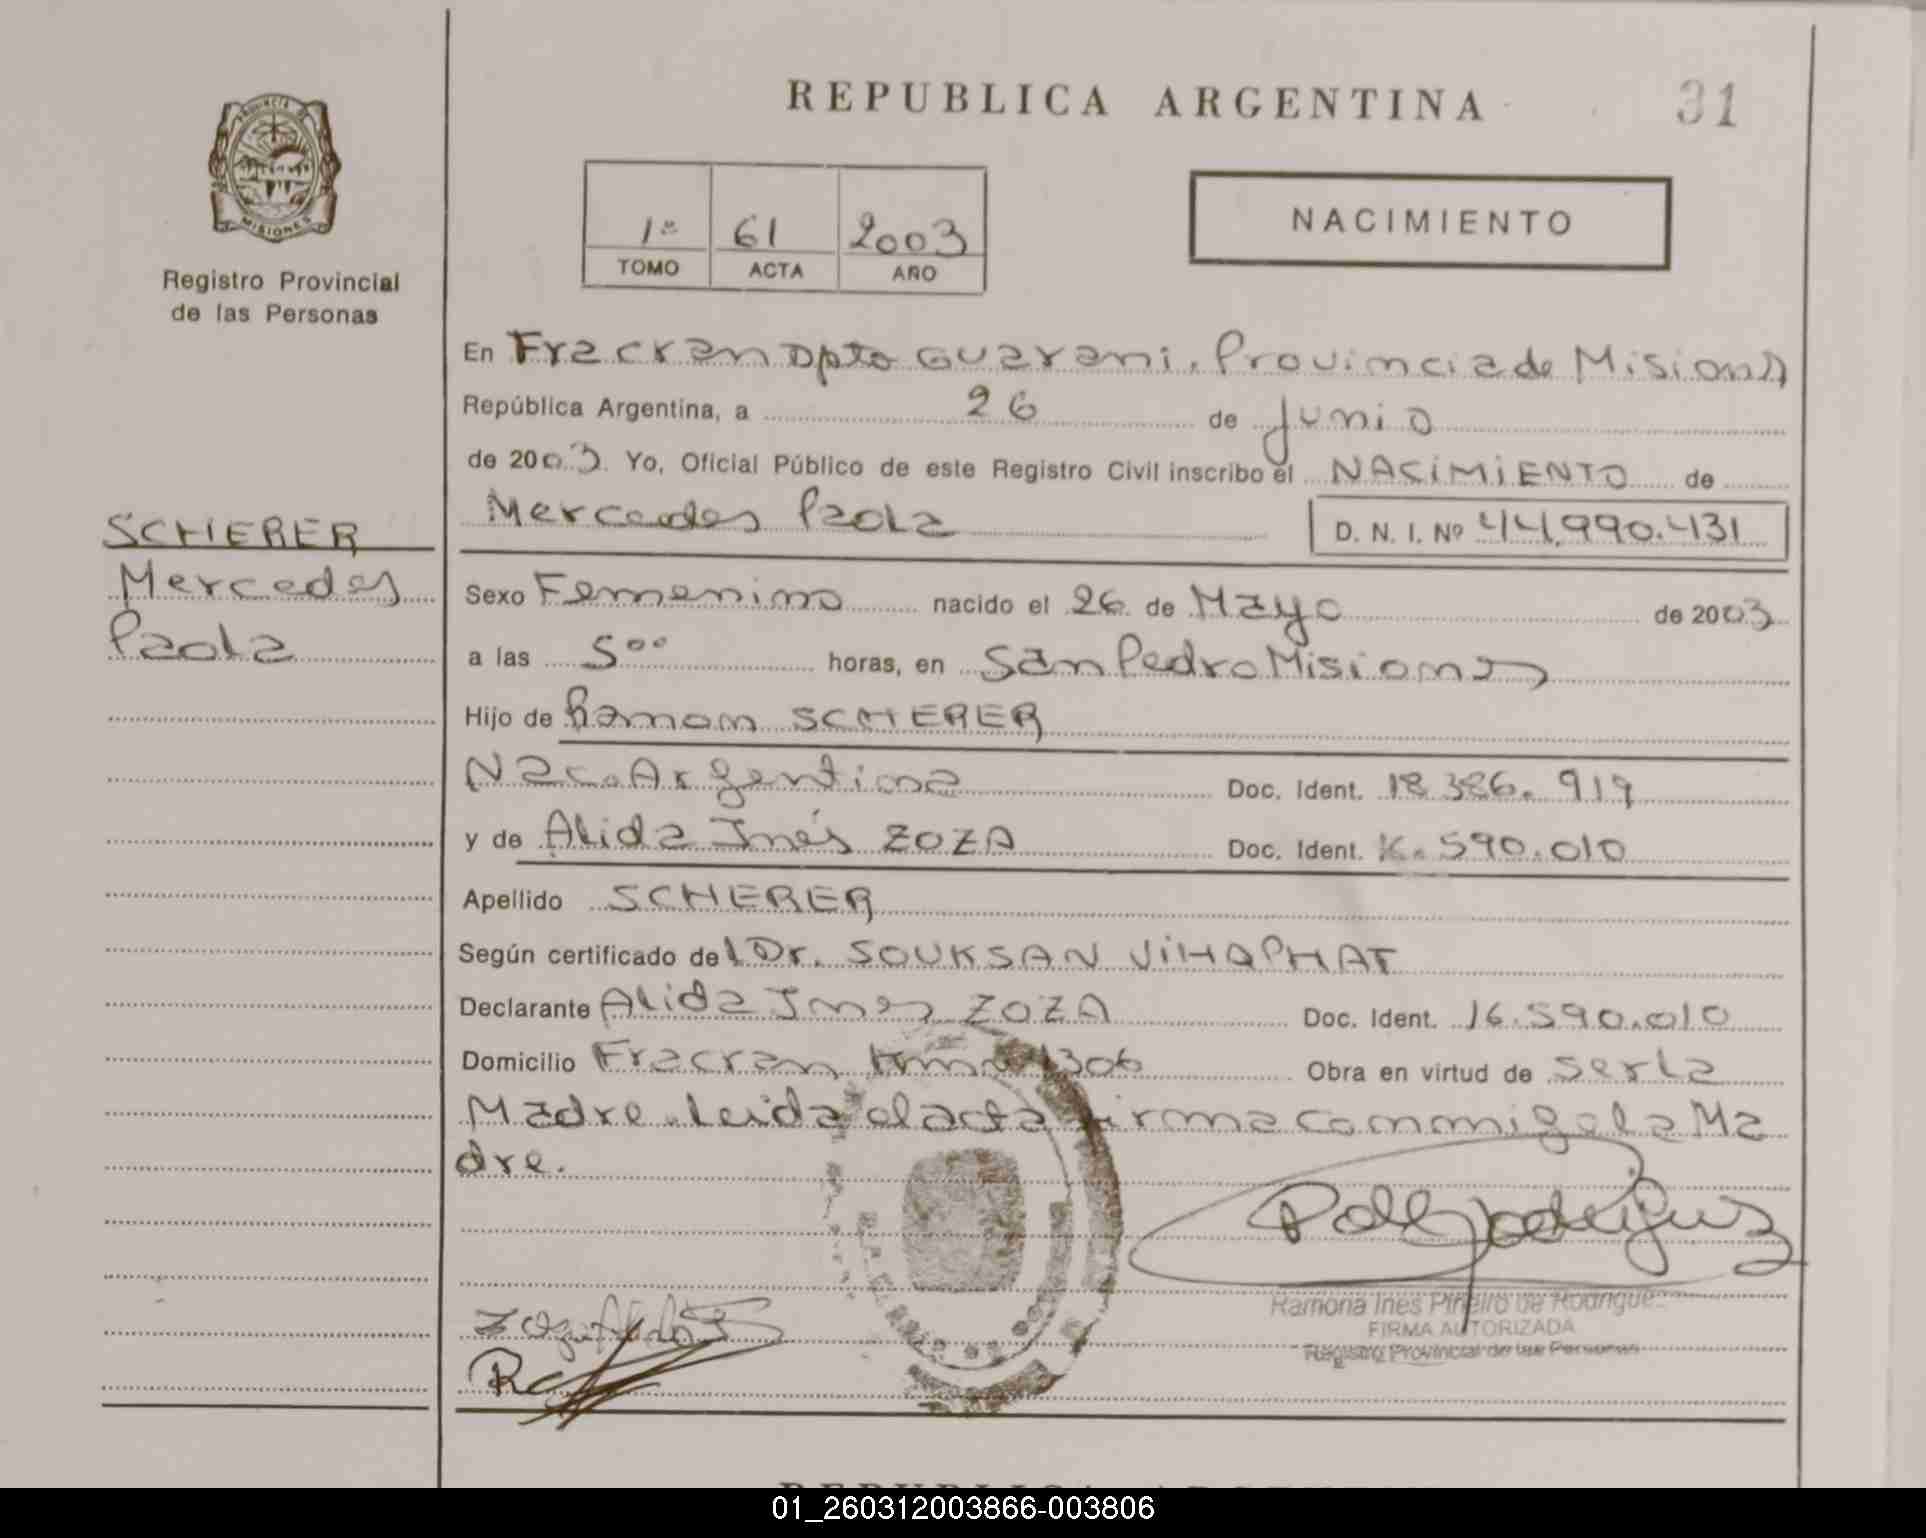 REPUBLICA ARGENTINA
31
PROVINCIA DE
MISIONES
Registro Provincial
de las Personas
1º 61 2003
TOMO ACTA AÑO
NACIMIENTO
En Fracran Dpto Guarani, Provincia de Misiones
República Argentina, a 26 de Junio
de 2003. Yo, Oficial Público de este Registro Civil inscribo el NACIMIENTO de
Mercedes Paola
D. N. I. Nº 44.990.431
SCHERER
Mercedes
Paola
Sexo Femenino nacido el 26 de Mayo de 2003
a las 5ºº horas, en San Pedro Misiones
Hijo de Ramon SCHERER
Nac. Argentina Doc. Ident. 18.386.919
y de Alida Inés ZOZA Doc. Ident. 16.590.010
Apellido SCHERER
Según certificado del Dr. SOUKSAN VIHAPHAT
Declarante Alida Ines ZOZA Doc. Ident. 16.590.010
Domicilio Fracran Km 1306 Obra en virtud de ser la
Madre. Leida el acta firma conmigo la Ma
dre.
Ramona Ines Piñeiro de Rodrigue
FIRMA AUTORIZADA
Registro Provincial de las Personas
01_260312003866-003806